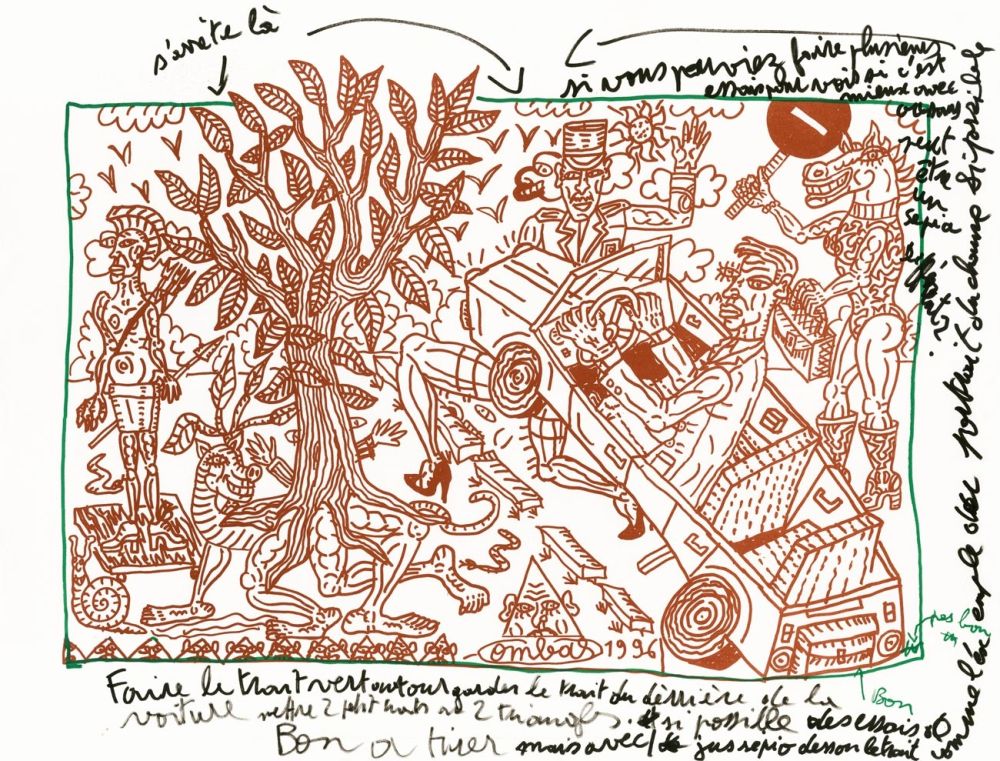 s'arrête là
si vous pouviez faire plusieurs
essais pour voir si c'est
mieux avec
ou sans
peut
être
un
sepia
ombas 1996
pas bon
Bon
Faire le trait vert autour garder le trait du derrière de la
voiture mettre 2 petit traits aux 2 triangles. si possible des essais
Bon a tirer mais avec jus sepia dessous le trait
comme les exemple des portrait Duchamp si possible